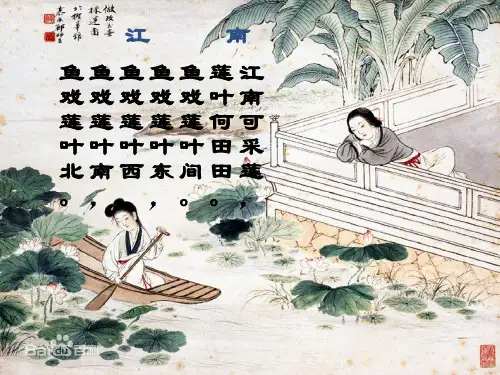 江 南
江南可采莲，
莲叶何田田。
鱼戏莲叶间。
鱼戏莲叶东，
鱼戏莲叶西
鱼戏莲叶南，
鱼戏莲叶北。
採蓮圖
Baidu百科